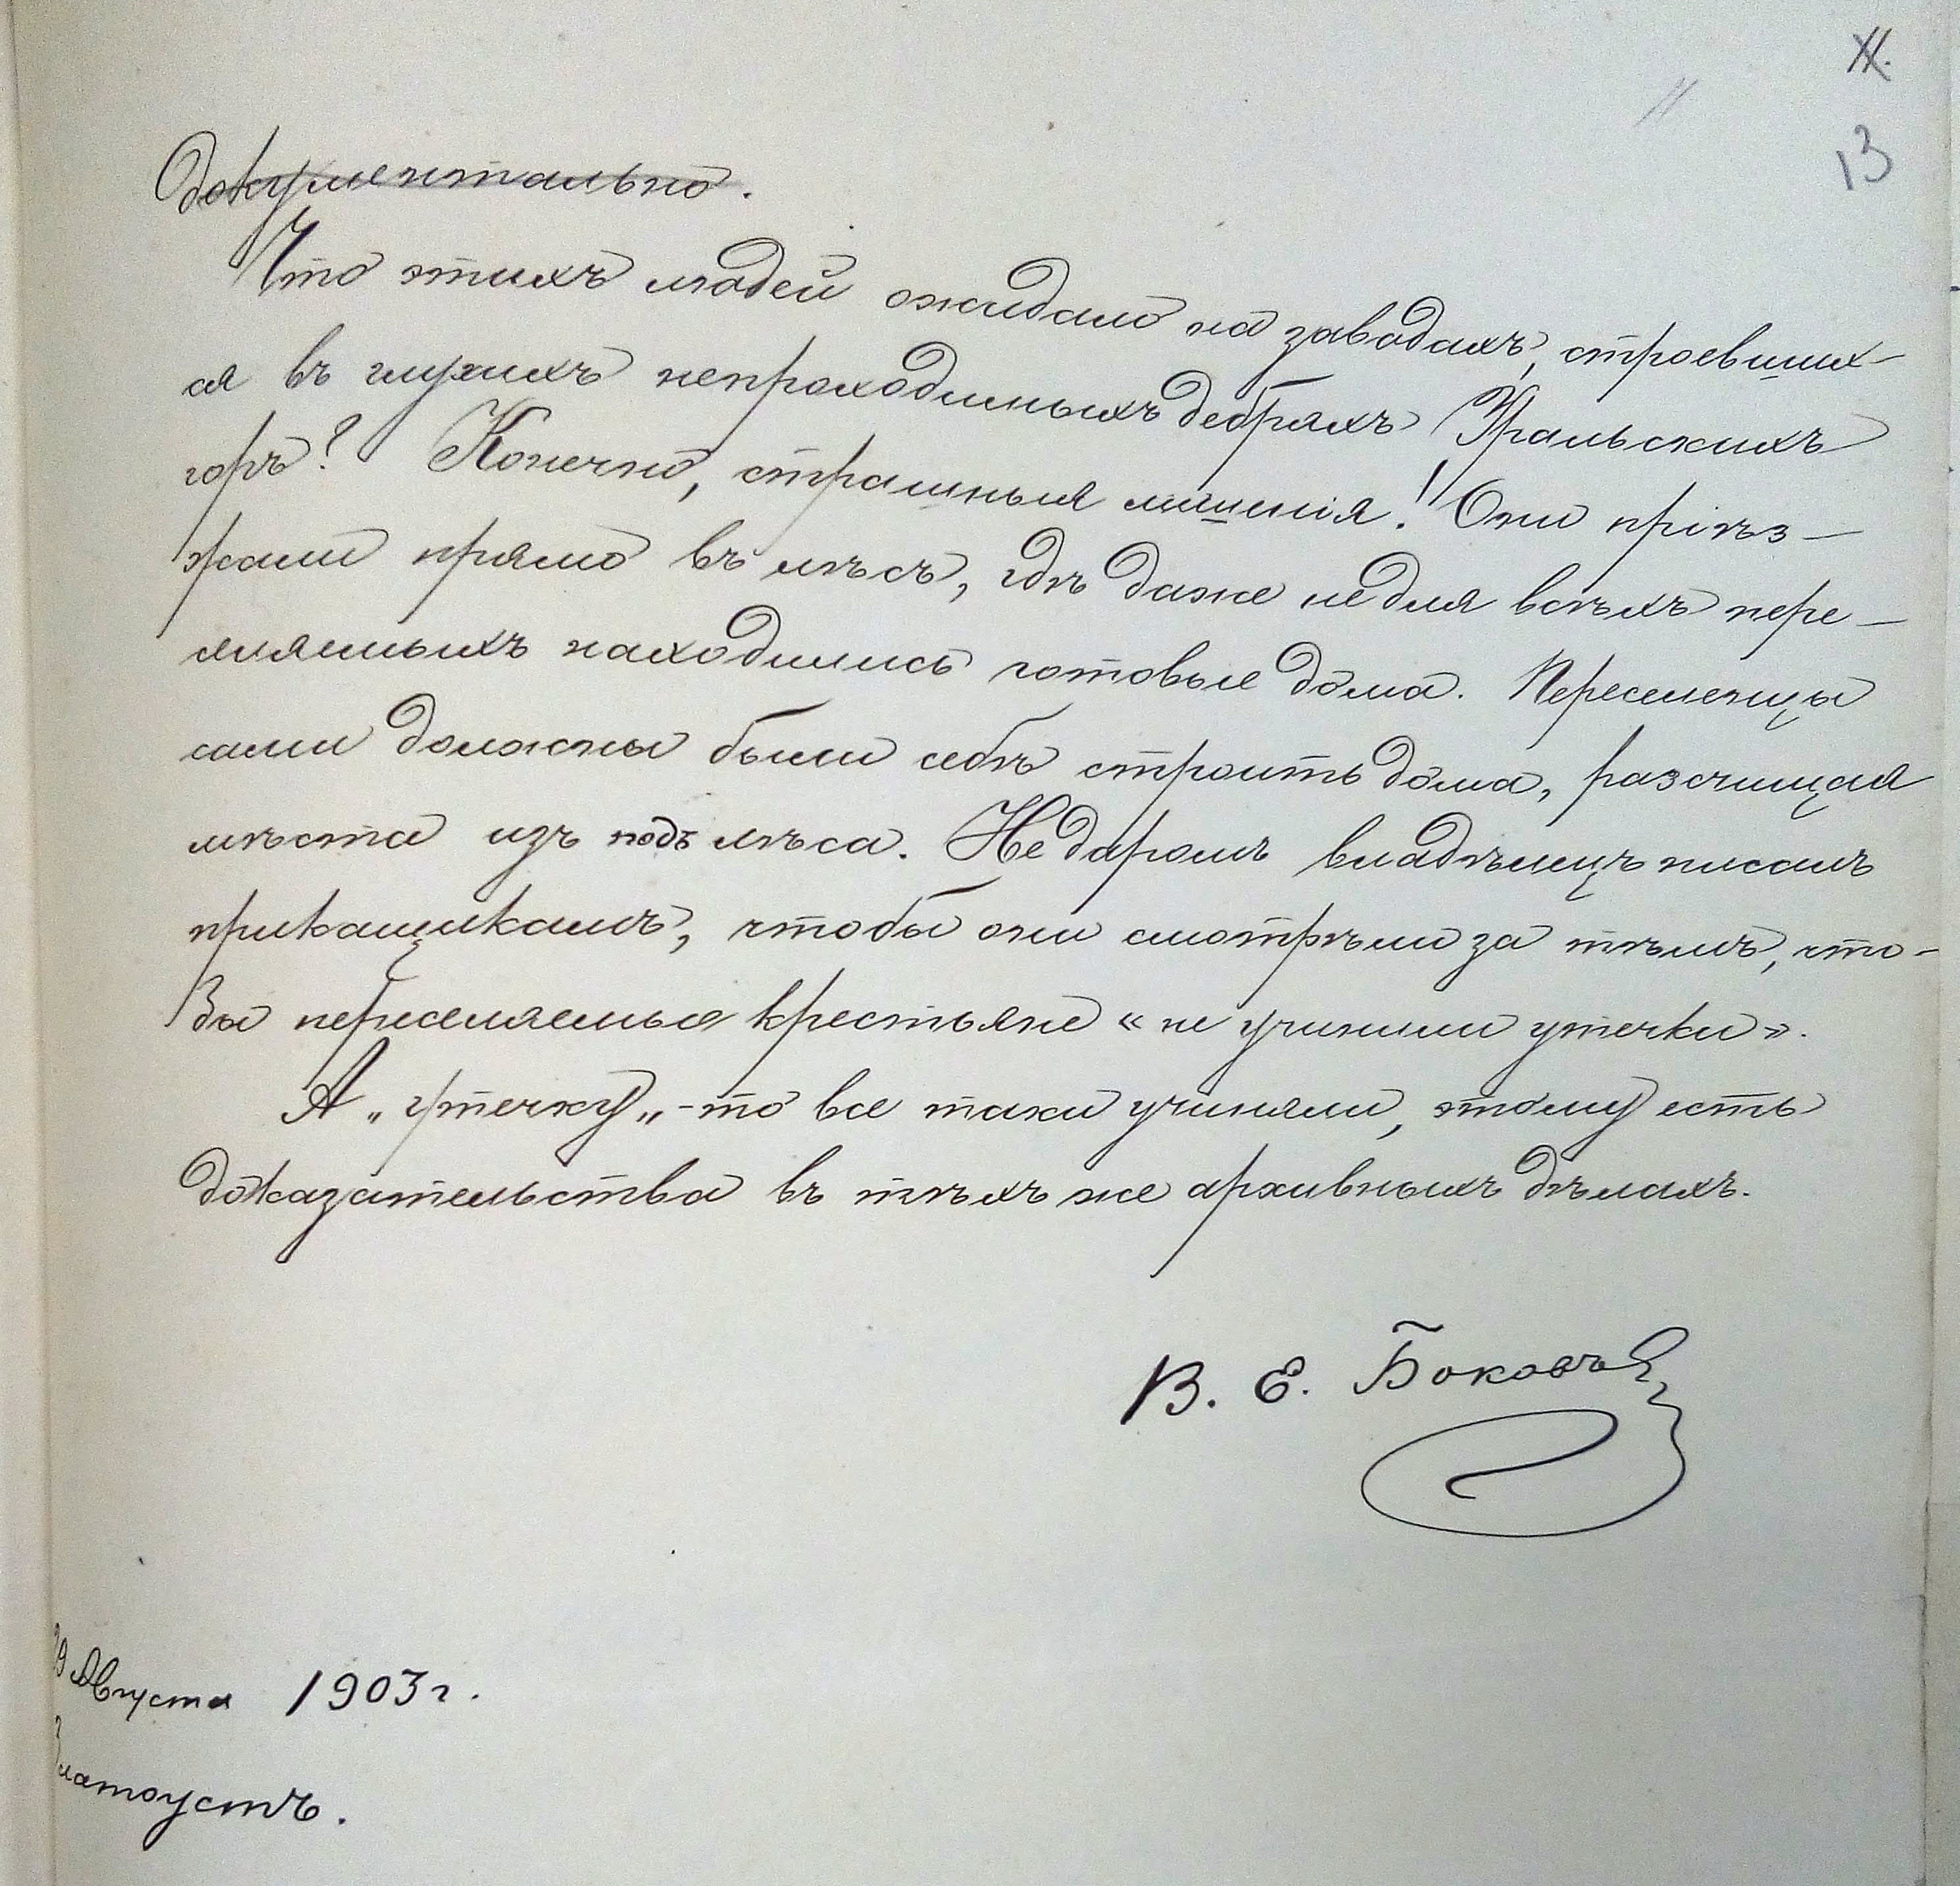 13
документально.
Что этихъ людей ожидало на заводахъ, строевших-
ся въ глухихъ непроходимыхъ дебряхъ Уральскихъ
горъ? Конечно, страшныя лишенія! Они пріѣз-
жали прямо въ лѣсъ, гдѣ даже не для всѣхъ пере-
селяемыхъ находились готовые дома. Переселенцы
сами должны были себѣ строить дома, разсчищая
мѣста изъ подъ лѣса. Не даромъ владѣлецъ писалъ
прикащикамъ, чтобы они смотрѣли за тѣмъ, что-
бы переселяемые крестьяне « не учинили утечки ».
А „ утечку „ -то все таки учиняли, этому есть
доказательства въ тѣхъ же архивныхъ дѣлахъ.
В. Е. Боковъ
Августа 1903 г.
Златоустъ.